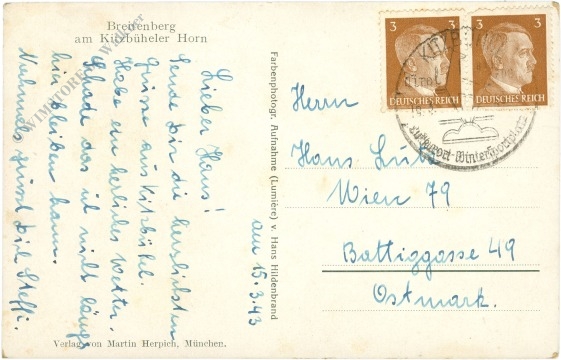 Breitenberg
am Kitzbüheler Horn
Lieber Hans!
Sende Dir die herzlichsten
Grüsse aus Kitzbühel.
Habe ein herliches Wetter.
Schade das ich nicht länger
hier bleiben kann.
Nochmals grüsst Dich Steffi.
am 15.3.43
Verlag von Martin Herpich, München.
Farbenphotogr. Aufnahme (Lumière) v. Hans Hildenbrand
3
3
DEUTSCHES REICH
DEUTSCHES REICH
Luftkurort Wintersportplatz
Herrn
Hans
Wien 79
Battiggasse 49
Ostmark.